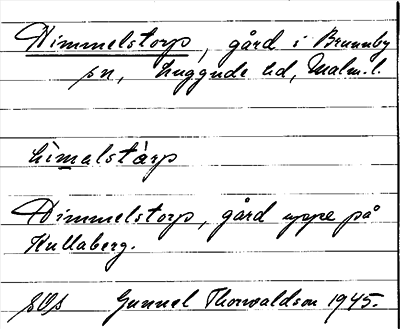 Himmelstorp, gård i Brunnby
sn, Luggude hd, Malm. l.
hìmalstàrp
Himmelstorp, gård uppe på
Kullaberg.
Gunnel Thorwaldson 1945.